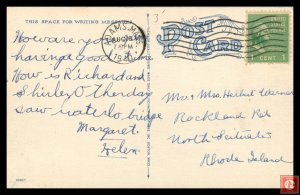 THIS SPACE FOR WRITING MESSAGES
How are you
having a good time
How is Richard and
Shirley O the day
saw waterlo bridge
Margaret
Helen
ADAMS, MASS.
1 PM
1940
POST
CARD
1 CENT 1
Mr. & Mrs. Herbert Warner
Rockland Rd.
North Scituate
Rhode Island